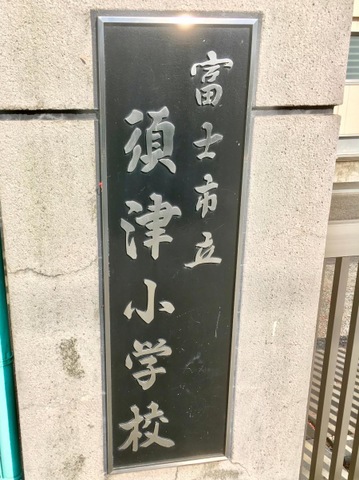 富士市立
須津小学校